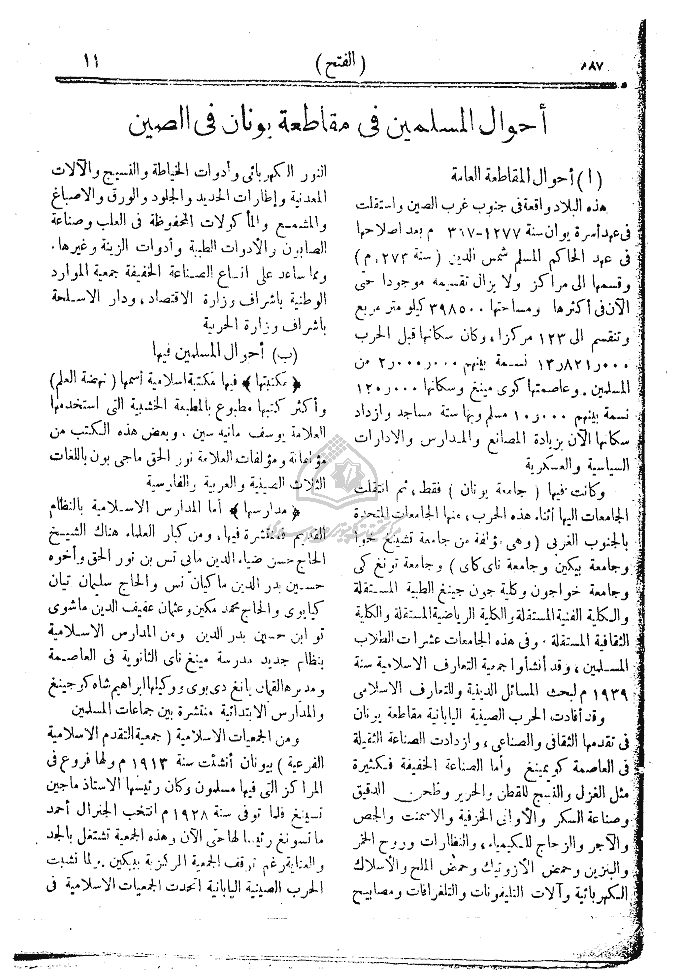 ٥٨٧
( الفتح )
١١
أحوال المسلمين فى مقاطعة يونان فى الصين
( ا ) أحوال المقاطعة العامة
هذه البلاد واقعة فى جنوب غرب الصين واستقلت
فى عهد أسرة يوان سنة ١٢٧٧-٣٦٧ م بعد اصلاحها
فى عهد الحاكم المسلم شمس الدين ( سنة ٢٧٣, م )
وقسمها الى مراكز ولا يزال تقسيمه موجودا حتى
الآن فى أكثرها ومساحتها ٣٩٨٥٠٠ كيلو متر مربع
وتنقسم الى ١٢٣ مركزا ، وكان سكانها قبل الحرب
١٣٫٨٢١٫٠٠٠ نسمة بينهم ٢٫٠٠٠٫٠٠٠ من
المسلمين . وعاصمتها كوى مينغ وسكانها ١٢٠٫٠٠٠
نسمة بينهم ١٠٫٠٠٠ مسلم وبها ستة مساجد وازداد
سكانها الآن بزيادة المصانع والمدارس والادارات
السياسية والعسكرية
وكانت فيها ( جامعة يونان ) فقط ، ثم انتقلت
الجامعات اليها أثناء هذه الحرب ، منها الجامعات المتحدة
بالجنوب الغربى ( وهى مؤلفة من جامعة تشينغ خوا
وجامعة بيكين وجامعة ناى كاى ) وجامعة تونغ كى
وجامعة خواجون وكلية جون جينغ الطبية المستقلة
والكلية الفنية المستقلة والكلية الرياضية المستقلة والكلية
الثقافية المستقلة . وفى هذه الجامعات عشرات الطلاب
المسلمين ، وقد أنشأوا جمعية التعارف الاسلامية سنة
١٩٣٩ م لبحث المسائل الدينية وللتعارف الاسلامى
وقد أفادت الحرب الصينية اليابانية مقاطعة يونان
فى تقدمها الثقافى والصناعى ، وازدادت الصناعة الثقيلة
فى العاصمة كويمينغ وأما الصناعة الخفيفة فكثيرة
مثل الغزل والنسج للقطن والحرير وطحن الدقيق
وصناعة السكر والأوانى الخزفية والاسمنت والجص
والآجر والزجاج للكيمياء ، والنظارات وروح الخمر
والبنزين وحمض الأزوتيك وحمض الملح والأسلاك
الكهربائية وآلات التليفونات والتلغرافات ومصابيح
النور الكهربائى وأدوات الخياطة والنسيج والآلات
المعدنية وإطارات الحديد والجلود والورق والاصباغ
والمشمع والمأكولات المحفوظة فى العلب وصناعة
الصابون والأدوات الطبية وأدوات الزينة وغيرها .
ومما ساعد على اتساع الصناعة الخفيفة جمعية الموارد
الوطنية باشراف وزارة الاقتصاد ، ودار الاسلحة
باشراف وزارة الحربية
(ب) أحوال المسلمين فيها
﴿ مكتبتها ﴾ فيها مكتبة اسلامية أسمها ( نهضة العلم )
وأكثر كتبها مطبوع بالمطبعة الخشبية التى استخدمها
العلامة يوسف مانيه سين ، وبعض هذه الكتب من
مؤلفاته ومؤلفات العلامة نور الحق ماجى بون باللغات
الثلاث الصينية والعربية والفارسية
﴿ مدارسها ﴾ أما المدارس الاسلامية بالنظام
القديم فمنتشرة فيها ، ومن كبار العلماء هناك الشيخ
الحاج حسن ضياء الدين مابى تس بن نور الحق وأخوه
حسين بدر الدين ماكيان تس والحاج سليمان تيان
كيابوى والحاج محمد مكين وعثمان عفيف الدين ماشوى
تو ابن حسين بدر الدين ومن المدارس الاسلامية
بنظام جديد مدرسة مينغ تاى الثانوية فى العاصمة
ومديرها لقمان يانغ دى بوى ووكيلها ابراهيم شاه كوجينغ
والمدارس الابتدائية منتشرة بين جماعات المسلمين
ومن الجمعيات الاسلامية ( جمعية التقدم الاسلامية
الفرعية ) بيونان أنشئت سنة ١٩١٣ م ولها فروع فى
المراكز التى فيها مسلمون وكان رئيسها الاستاذ ماجين
نسينغ فلما توفى سنة ١٩٢٨ م انتخب الجنرال أحمد
ما تسونغ رئيسا لها حتى الآن وهذه الجمعية تشتغل بالجد
والعناية رغم توقف الجمعية المركزية ببيكين ولما نشبت
الحرب الصينية اليابانية اتحدت الجمعيات الاسلامية فى